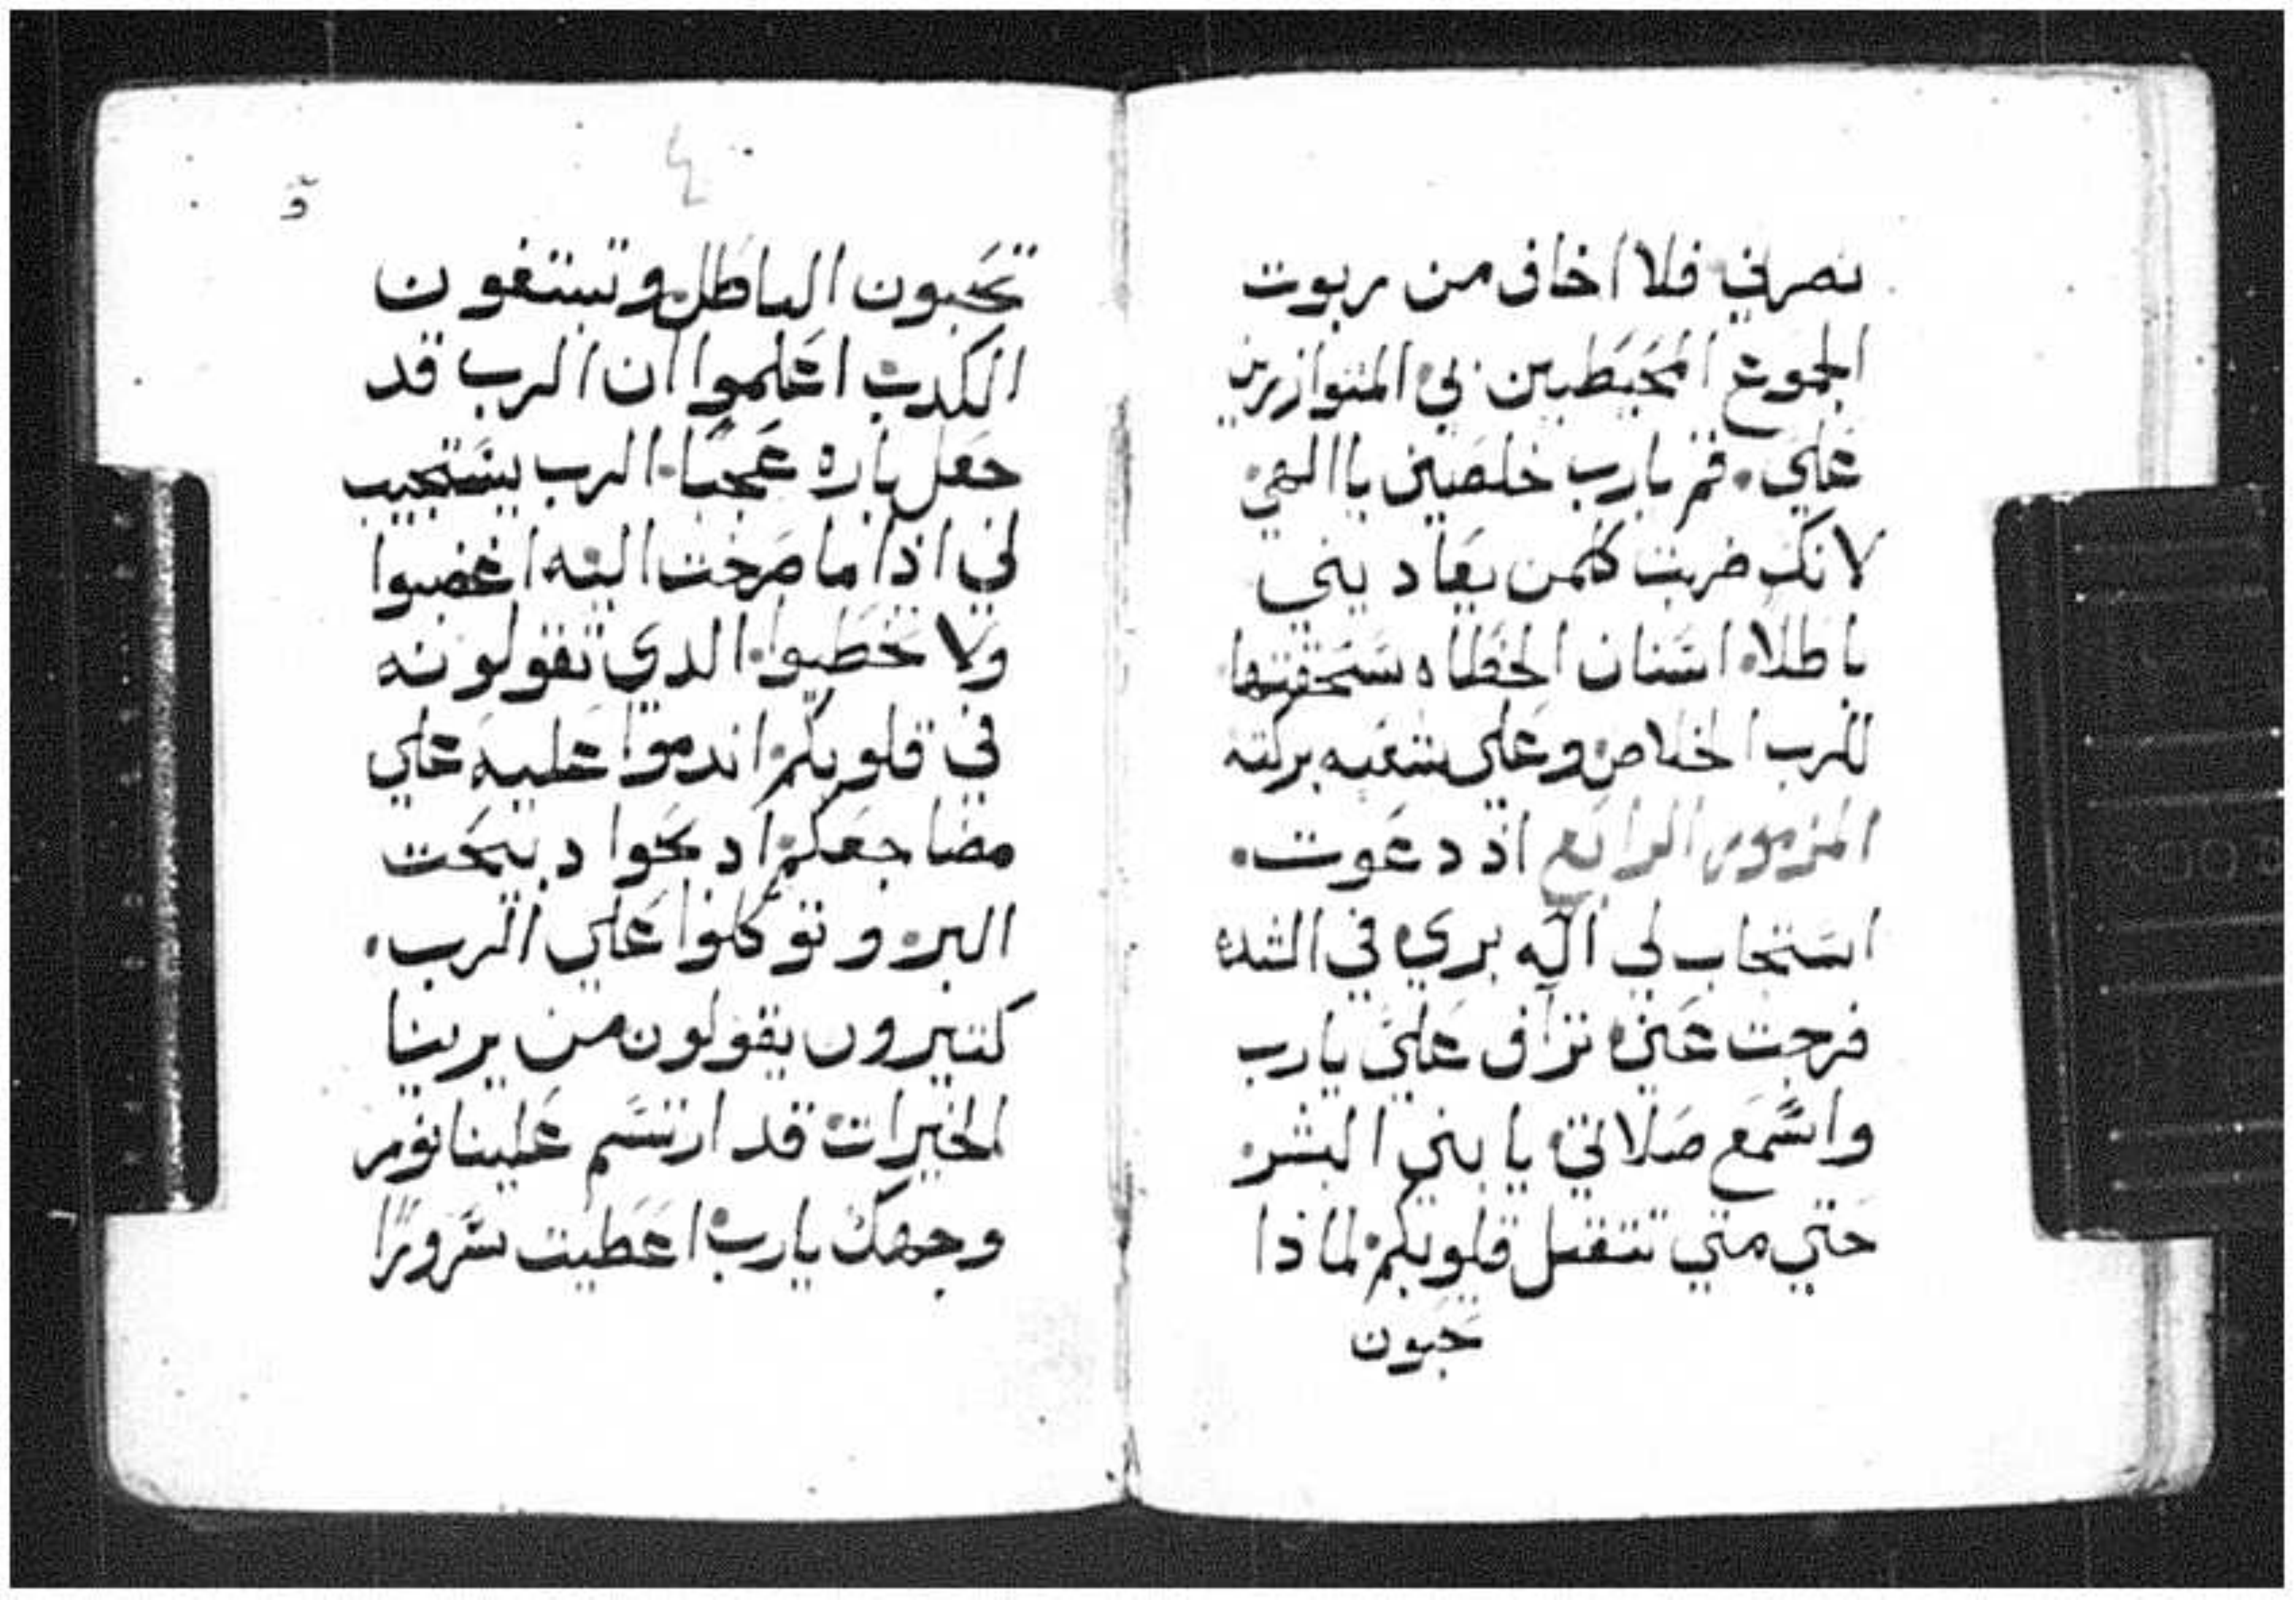 نصرني فلا اخاف من ربوت
الجموع المحيطين بي المتوازرين
علي. قم يارب خلصني ياالهي
لانك ضربت كلمن يعاديني
باطلا. اسنان الخطاه سحقتها
للرب الخلاص وعلي شعبه بركته
المزمور الرابع اذ دعوت.
استجاب لي اله بري في الشده
فرجت عني. تراف علي يارب
واسمع صلاتي. يا بني البشر
حتي متي تتقل قلوبكم لماذا
تحبون
تحبون الباطل وتبتغون
الكدب اعلموا ان الرب قد
جعل باره عجبا. الرب يستجيب
لي اذا ما صرخت اليه اغضبوا
ولا تخطيوا. الدي تقولونه
في قلوبكم اندموا عليه علي
مضاجعكم ادبحوا دبيحت
البر. وتوكلوا علي الرب.
كتيرون يقولون من يرينا
الخيرات قد ارتسم علينا نور
وجهك يارب اعطيت سرورًا